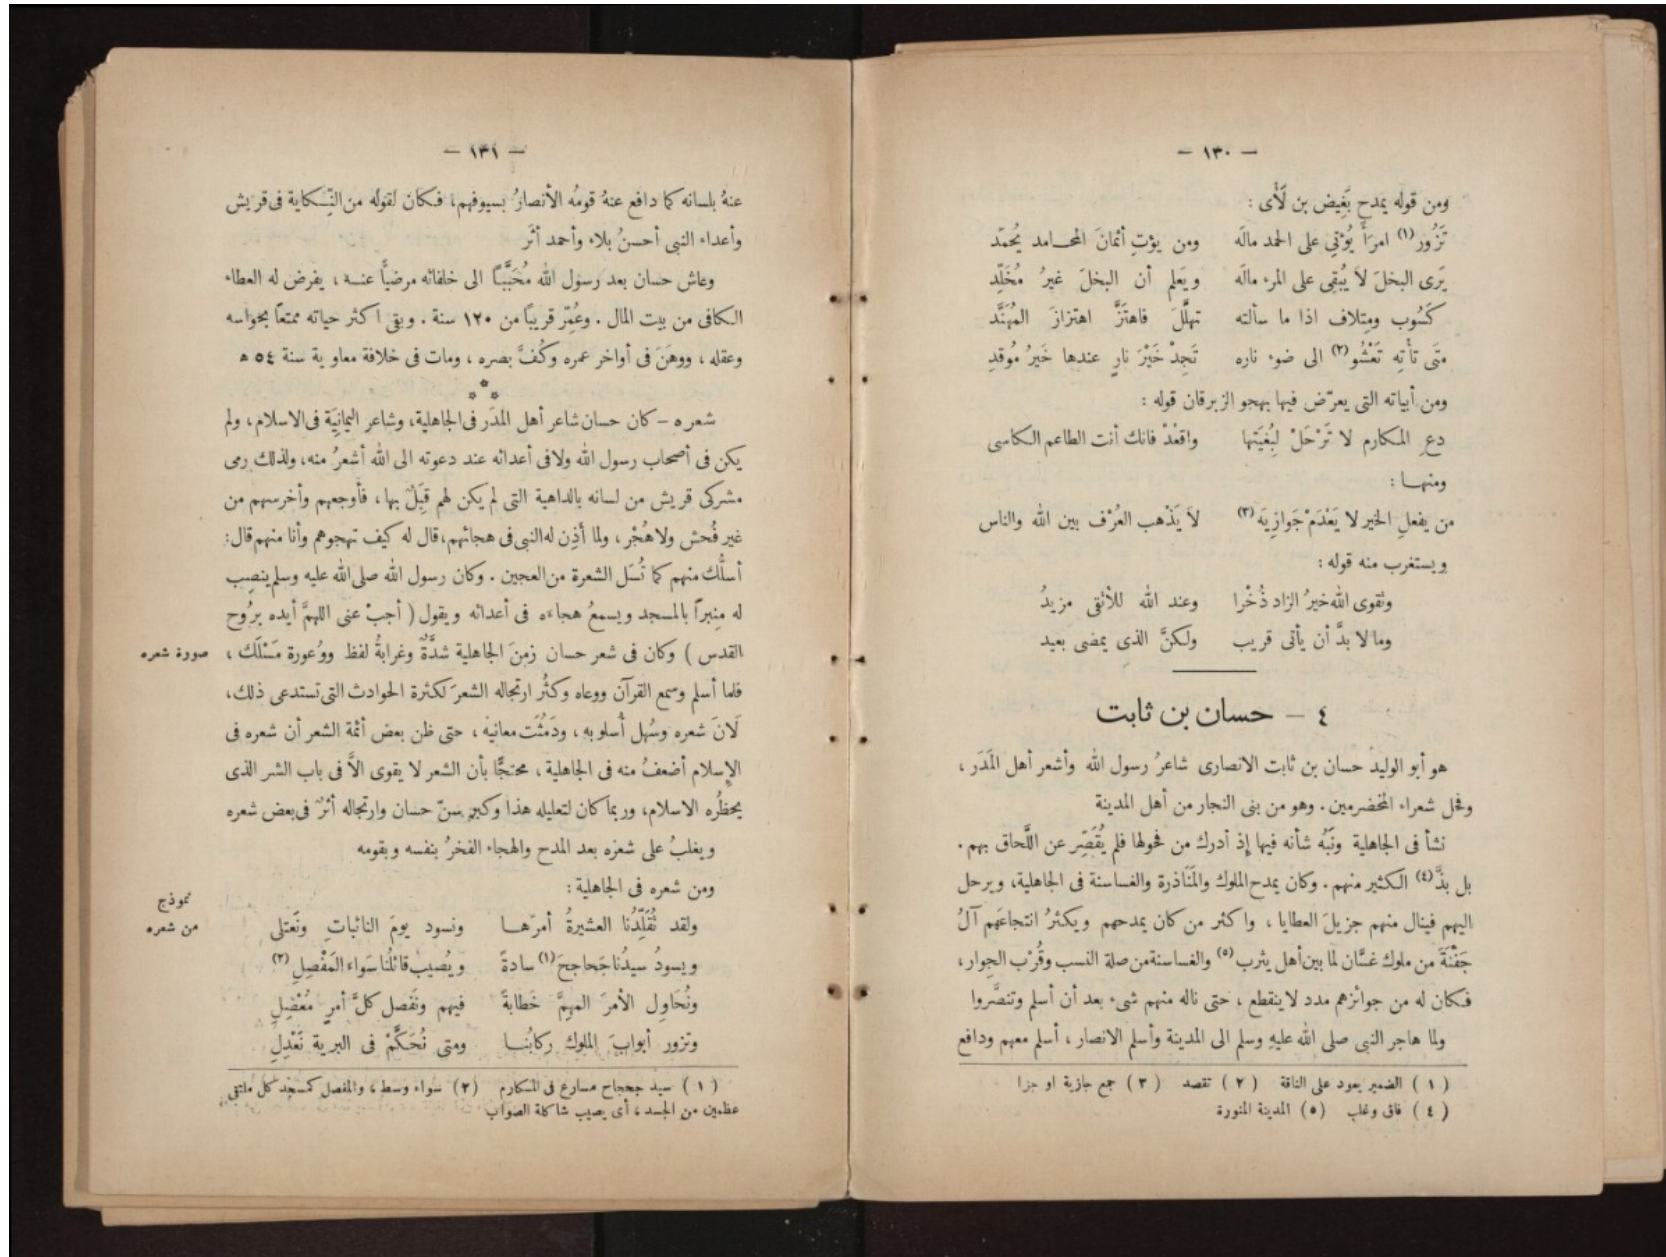 — ١٣٠ —
ومن قوله يمدح بَغِيض بن لَأْى :
تَزُور(١) امرَأً يُؤتِي على الحمد مالَه ومن يؤتِ أثمانَ المحـامد يُحمَد
يَرى البخلَ لاَ يُبقِى على المرء مالَه ويَعلم أن البخلَ غيرُ مُخَلِّد
كَسُوب ومِتلاف اذا ما سألته تهلَّلَ فاهتَزَّ اهتزازَ المهُنَّد
متَى تأْتِه تَعْشُو(٢) الى ضوء ناره تَجِدْ خَيْرَ نارٍ عندها خَيرُ مُوقدِ
ومن أبياته التى يعرّض فيها بهجو الزبرقان قوله :
دعِ المكارم لا تَرْحَلْ لِبُغيَتها واقعُدْ فانك أنت الطاعم الكاسى
ومنهـا :
من يفعلِ الخير لا يَعْدَمْ جَوازِيَه(٣) لاَ يَذْهب العُرْف بين الله والناس
ويستغرب منه قوله :
وتقوى الله خيرُ الزاد ذُخْرا وعند الله للأتقى مزيدُ
وما لا بدَّ أن يأتى قريب ولكنَّ الذى يمضى بعيد
٤ — حسان بن ثابت
هو أبو الوليد حسان بن ثابت الانصارى شاعرُ رسول الله وأشعر أهل المَدَر ،
وفحل شعراء المخضرمين . وهو من بنى النجار من أهل المدينة
نشأ فى الجاهلية ونَبُه شأنه فيها إذ أدرك من فحولها فلم يُقَصِّر عن اللَّحاق بهم .
بل بذَّ(٤) الكثير منهم . وكان يمدح الملوك والمَنَاذرة والغساسنة فى الجاهلية، ويرحل
اليهم فينال منهم جزيلَ العطايا ، واكثر من كان يمدحهم ويكثرُ انتجاعَهم آلُ
جَفْنَةَ من ملوك غسَّان لما بين أهل يثرب(٥) والغساسنة من صلة النسب وقُرْب الجِوار ،
فكان له من جوائزهم مدد لا ينقطع ، حتى ناله منهم شىء بعد أن أسلم وتنصَّروا
ولما هاجر النبى صلى الله عليهِ وسلم الى المدينة وأسلم الانصار ، أسلم معهم ودافع
( ١ ) الضمير يعود على الناقة ( ٢ ) تقصد ( ٣ ) جمع جازية او جزا
( ٤ ) فاق وغلب (٥) المدينة المنورة
— ١٣١ —
عنهُ بلسانه كما دافع عنهُ قومُه الأنصارُ بسيوفهم، فكان لقوله من النِّكاية فى قريش
وأعداء النبى أحسنُ بلاء وأحمد أثَر
وعاش حسان بعد رسول الله مُحَبَّبًا الى خلفائه مرضيًّا عنـه ، يفرض له العطاء
الكافى من بيت المال . وعُمِّر قريبًا من ١٢٠ سنة . وبقى اكثر حياته ممتعاً بحواسه
وعقله ، ووهَنَ فى أواخر عمره وكُفَّ بصره ، ومات فى خلافة معاوية سنة ٥٤ ه
* * *
شعره — كان حسان شاعر أهل المدَر فى الجاهلية، وشاعر اليمانِيَة فى الاسلام ، ولم
يكن فى أصحاب رسول الله ولا فى أعدائه عند دعوته الى الله أشعرُ منه، ولذلك رمى
مشركى قريش من لسانه بالداهية التى لم يكن لهم قِبَلٌ بها ، فأوجعهم وأخرسهم من
غير فُحش ولا هُجْر ، ولما أذِن له النبى فى هجائهم، قال له كيف تهجوهم وأنا منهم قال:
أسلُّك منهم كما تُسَل الشعرة من العجين . وكان رسول الله صلى الله عليه وسلم ينصِب
له مِنبراً بالمسجد ويسمعُ هجاءه فى أعدائه ويقول ( أجبْ عنى اللهمَّ أيده برُوح
القدس ) وكان فى شعر حسان زمنَ الجاهلية شدَّةٌ وغرابةُ لفظ ووُعورة مَسْلَك ،
صورة شعره
فلما أسلم وسمع القرآن ووعاه وكثُر ارتجاله الشعرَ لكثرة الحوادث التى تستدعى ذلك،
لَانَ شعره وسُهل أسلوبه ، ودَمُثَت معانيه ، حتى ظن بعض أئمة الشعر أن شعره فى
الإسلام أضعفُ منه فى الجاهلية ، محتجًّا بأن الشعر لا يقوى الاَّ فى باب الشر الذى
يحظرُه الاسلام، وربما كان لتعليله هذا وكبر سنّ حسان وارتجاله أثرٌ فى بعض شعره
ويغلبُ على شعره بعد المدح والهجاء الفخرُ بنفسه وبقومه
ومن شعره فى الجاهلية :
نموذج
من شعره
ولقد تُقَلِّدُنا العشيرةُ أمرَهـا ونسود يومَ النائباتِ ونَعتلى
ويسودُ سيدُنا جَحاجحَ(١) سادةً ويُصيب قائلُنا سَواء المَفْصِلِ(٢)
ونُحَاوِل الأمرَ المهمَّ خَطابةً فيهم ونَفصل كلَّ أمرٍ مُعْضِلِ
وتزور أبوابَ الملوك ركابُنـا ومتى نُحَكَّمْ فى البرية نَعْدِلِ
( ١ ) سيد جحجاح مسارع فى المكارم (٢) سواء وسط، والمفصل كمسجد كل ملتقى
عظمين من الجسد ، أى يصيب شاكلة الصواب